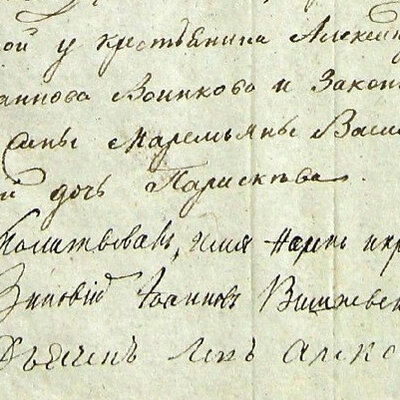 ой у крестьянина Алексѣ
аннова Воинкова и Закон
Маремьяны Васи
й дочь Парискѣва
Молитвовалъ, имя нареклъ
Зиновій Іоанновъ
Дьячекъ Левъ Алекс